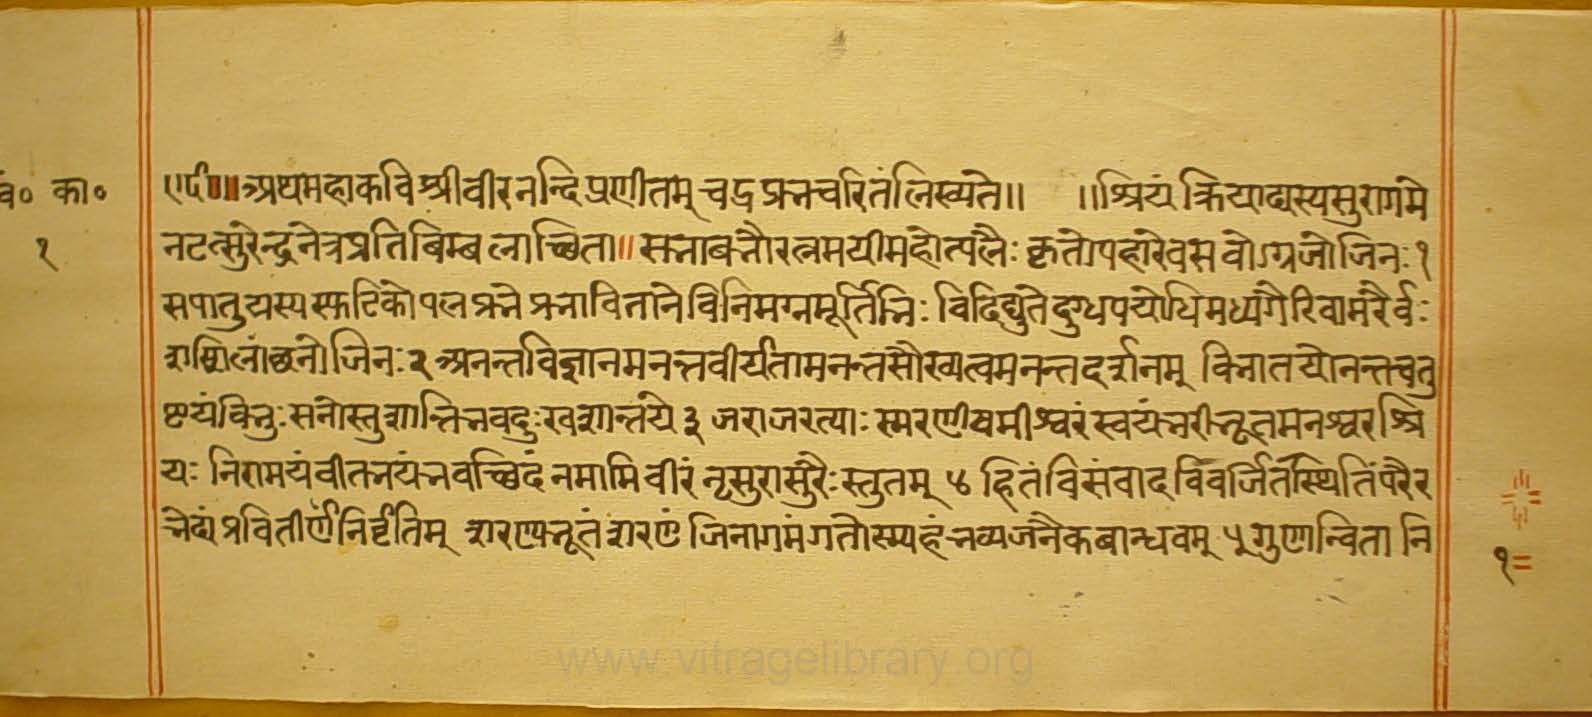 चं॰ का॰
१
ए६०॥ अथ महाकवि श्रीवीरनन्दिप्रणीतम् चद्रप्रभचरितं लिख्यते॥ ॥श्रियं क्रियाद्यस्य सुरागमे
नटत्सुरेन्द्रनेत्रप्रतिबिम्बलाञ्छिता॥ सभा बभौ रत्नमयी महोत्पलैः कृतोपहारेव स वोऽग्रजो जिनः १
स पातु यस्य स्फटिकोपलप्रभे प्रभाविताने विनिमग्नमूर्तिभिः विदिद्युते दुग्धपयोधिमध्यगैरिवामरैर्वः
शशिलांछनो जिनः २ अनन्तविज्ञानमनन्तवीर्यतामनन्तसौख्यत्वमनन्तदर्शनम् विभाति योनन्तचतु
ष्टयं विभुः स नोस्तु शान्तिर्भवदुःखशान्तये ३ जराजरत्याः स्मरणीयमीश्वरं स्वयंभरीभूतमनश्वरश्रि
यः निरामयं वीतभयं भवच्छिदं नमामि वीरं नृसुरासुरैः स्तुतम् ४ हितं विसंवादविवर्जितस्थितिं परैर
भेद्यं प्रवितीर्णनिर्वृतिम् शरण्यभूतं शरणं जिनागमं गतोस्म्यहं भव्यजनैकबान्धवम् ५ गुणान्विता नि
१=
www.vitragelibrary.org